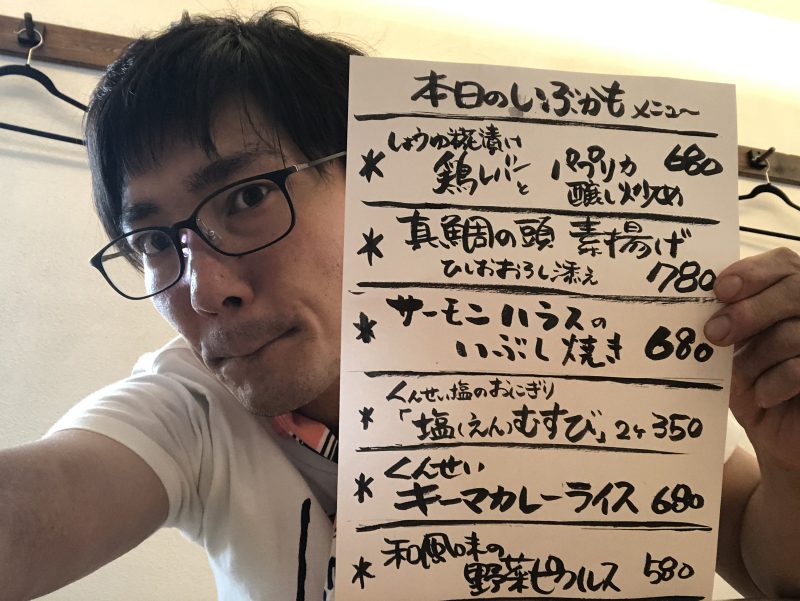 本日のいぶかもメニュ～
しょうゆ糀漬け
＊ 鶏レバーと パプリカ 680
醸し炒め
＊ 真鯛の頭 素揚げ
ひしおおろし添え 780
＊ サーモンハラスの
いぶし焼き 680
くんせい塩のおにぎり
＊ 「塩(えん)むすび」2ケ 350
くんせい
＊ キーマカレーライス 680
＊ 和風味の
野菜ピクルス 580